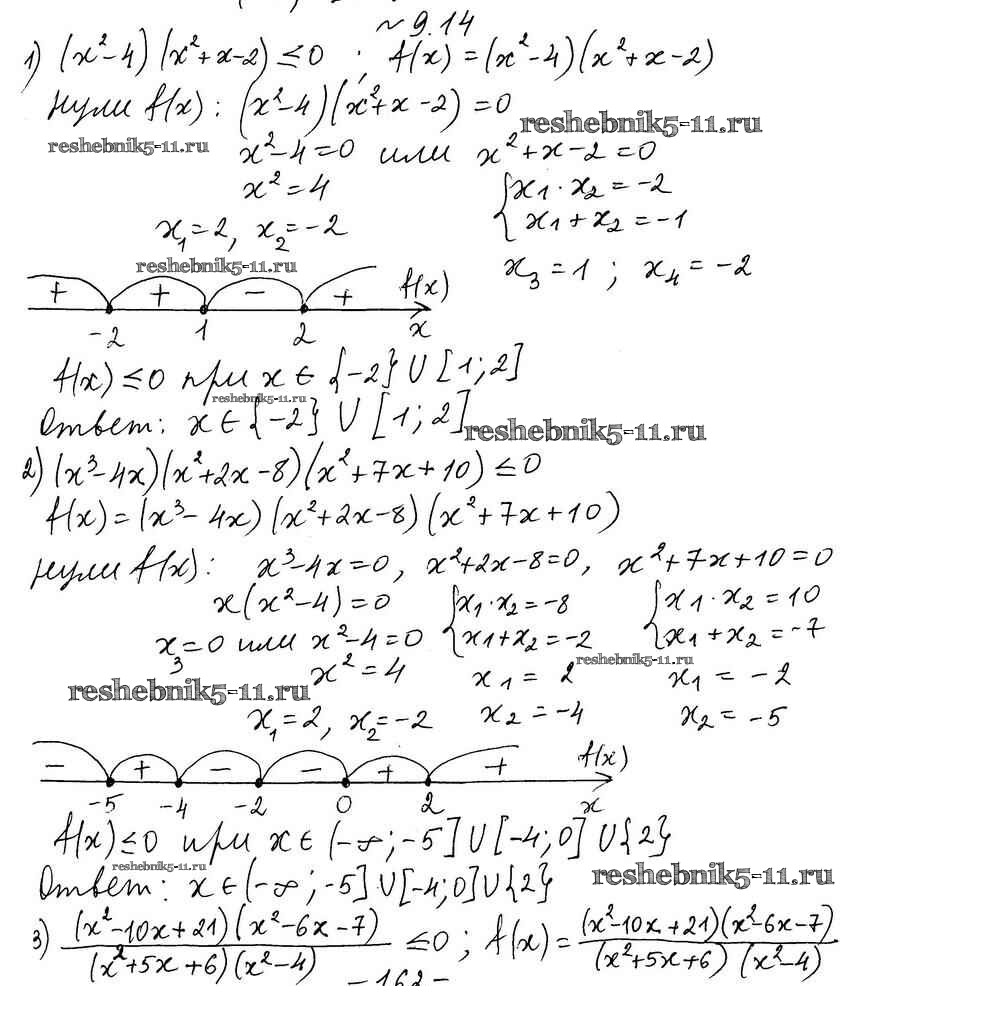 ~ 9.14
1) (x²-4)(x²+x-2) ≤ 0 ; f(x) = (x²-4)(x²+x-2)
нули f(x): (x²-4)(x²+x-2) = 0
reshebnik5-11.ru
reshebnik5-11.ru
x²-4=0 или x²+x-2=0
x²=4 {x₁·x₂ = -2
x₁=2, x₂=-2 x₁+x₂ = -1
reshebnik5-11.ru x₃=1 ; x₄=-2
+ + - + f(x)
-2 1 2 x
f(x) ≤ 0 при x ∈ {-2} ∪ [1;2]
reshebnik5-11.ru
Ответ: x ∈ {-2} ∪ [1;2]
reshebnik5-11.ru
2) (x³-4x)(x²+2x-8)(x²+7x+10) ≤ 0
f(x) = (x³-4x)(x²+2x-8)(x²+7x+10)
нули f(x): x³-4x=0, x²+2x-8=0, x²+7x+10=0
x(x²-4)=0 {x₁·x₂=-8 {x₁·x₂=10
x₃=0 или x²-4=0 x₁+x₂=-2 x₁+x₂=-7
reshebnik5-11.ru
x²=4 x₁=2 x₁=-2
reshebnik5-11.ru
x₁=2, x₂=-2 x₂=-4 x₂=-5
- + - - + + f(x)
-5 -4 -2 0 2 x
f(x) ≤ 0 при x ∈ (-∞;-5] ∪ [-4;0] ∪ {2}
reshebnik5-11.ru
Ответ: x ∈ (-∞;-5] ∪ [-4;0] ∪ {2}
reshebnik5-11.ru
3) (x²-10x+21)(x²-6x-7) / (x²+5x+6)(x²-4) ≤ 0 ; f(x) = (x²-10x+21)(x²-6x-7) / (x²+5x+6)(x²-4)
- 162 -